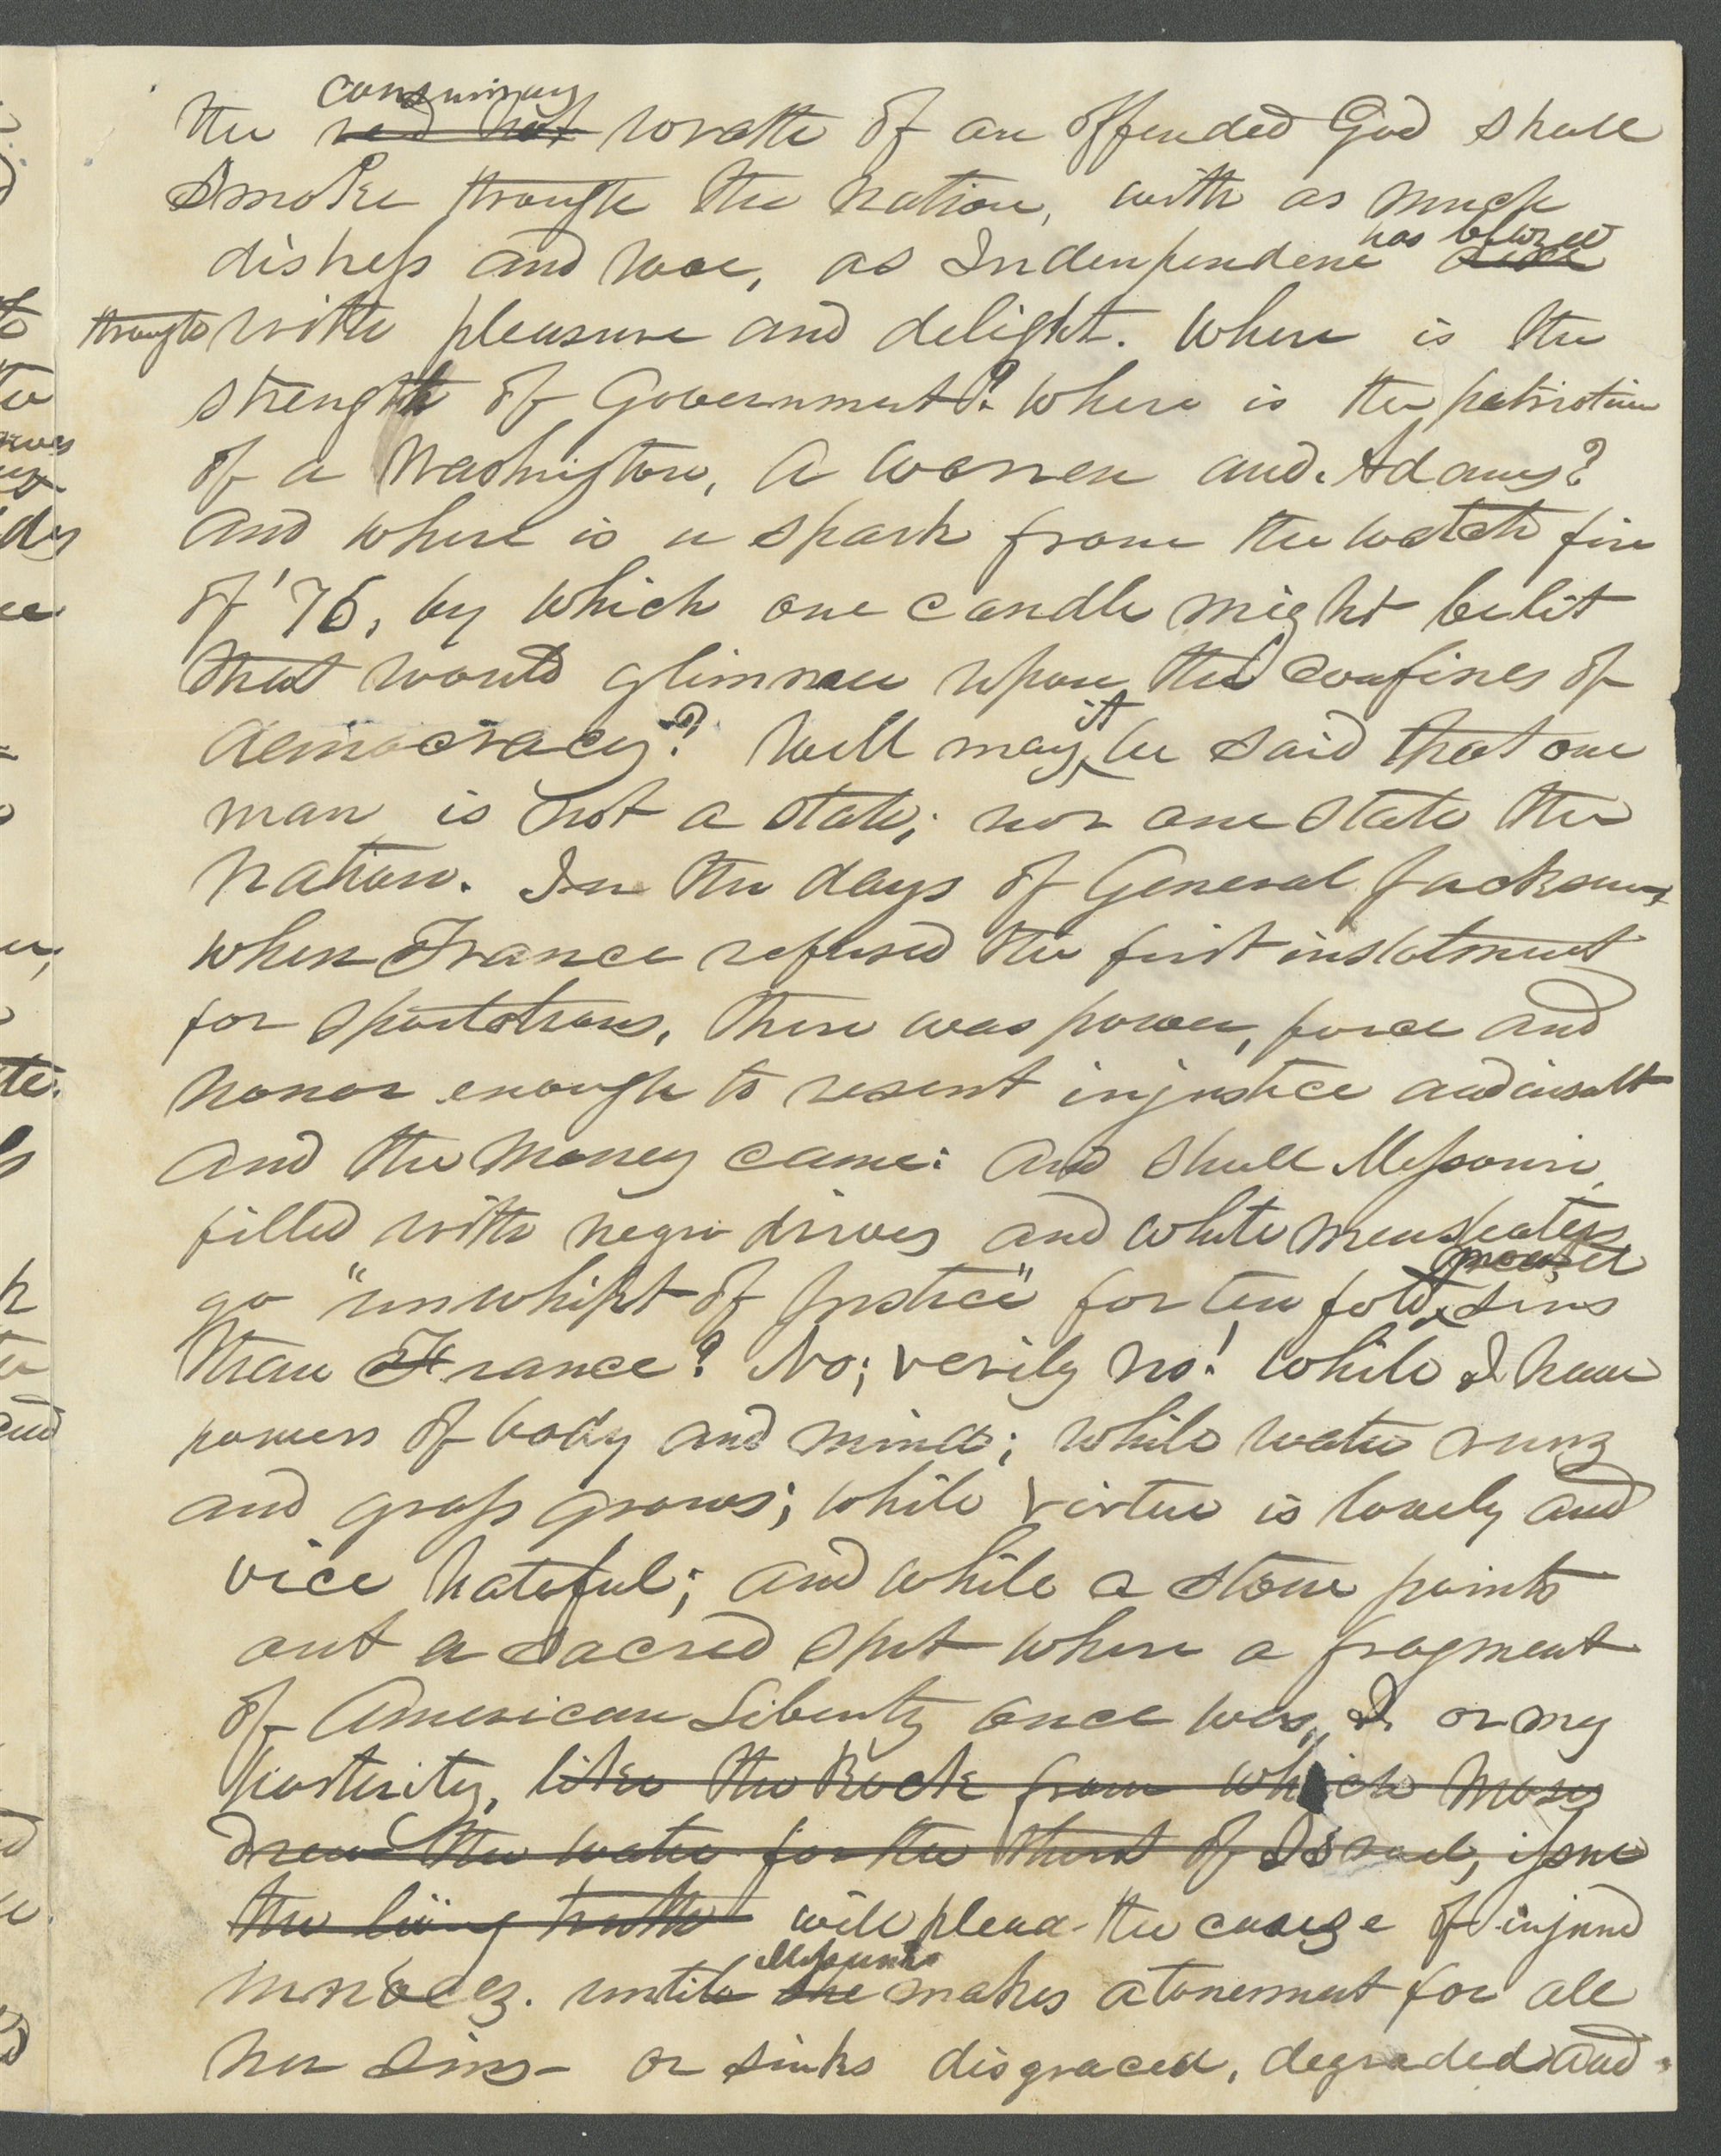 consuming
the red hot wrath of an offended God shall
smoke through the nation, with as much
has blazed
distress and woe, as Indenpendence
through with pleasure and delight. Where is the
strength of Government? Where is the patriotism
of a Washington, a Warren and Adams?
and where is a spark from the watch fire
of '76, by which one candle might be lit
that would glimmer upon the confines of
democracy? Well may it be said that one
man is not a state; nor one state the
nation. In the days of General Jackson,
when France refused the first instalment
for spoilations, there was power, force and
honor enough to resent injustice and insult
and the money came: and shall Missouri,
filled with negro drivers and white men stealers
go "unwhipt of Justice" for ten fold greater sins
than France? No; verily no! While I have
powers of body and mind; while water runs
and grass grows; while virtue is lovely and
vice hateful; and while a stone points
out a sacred spot where a fragment
of American Liberty once was, I or my
posterity, like the Rock from which Moses
drew the water for the thirst of Israel, issue
the living truth will plead the cause of injured
Missouri
innocez. until she makes atonement for all
her sins- or sinks disgraced, degraded and